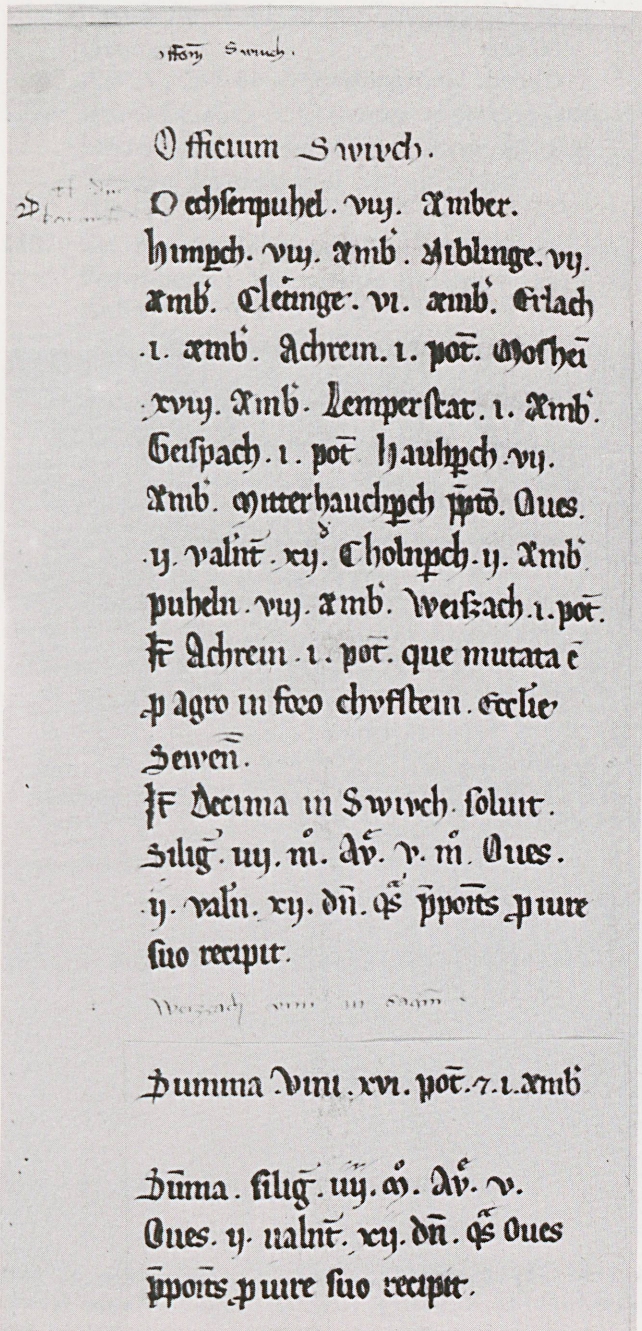 Swiuch.
Officium Swivch.
Oechsenpuhel. viij. Amber.
himpch. viij. Amb̛. Aiblinge. vij.
amb̛. Cletinge. vi. amb̛. Erlach
.i. amb̛. Achrein. i. pot̄. Moshei̅
.xviij. Amb̛. Lemperstat. i. Amb̛.
Geispach. i. pot̄ hauhꝑch. vij.
Amb̛. Mitterhauchꝑch p̄pt̄o. Oues.
.ij. valn̄t. xij. d̛ Cholnꝑch. ij. Amb̛
puheln. viij. amb̛. Weiszach. i. pot̄.
It̄ Achrein. i. pot̄. que mutata ē
ꝓ agro in foro chvfstein. Eccl̄ie
Sewen̄.
It̄ Decima in Swivch. soluit.
Silig̅. iiij. m͛. Av͛. v. m͛. Oues.
.ij. valn̄. xij. dn̄. qͣs p̄poīts ꝓ iure
suo recipit.
Weizzach
Summa Vini. xvi. pot̄. ⁊. i. amb̛
Su̅ma. silig̅. iiij. m͛. Av͛. v.
Oues. ij. ualnt̄. xij. dn̄. qͣs Oues
p̄poīts ꝓ iure suo recipit.